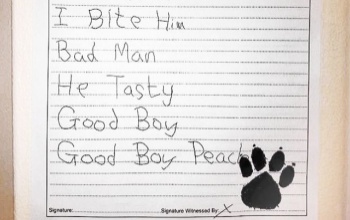 I Bite Him
Bad Man
He Tasty
Good Boy
Good Boy Peach
Signature: Signature Witnessed By: X